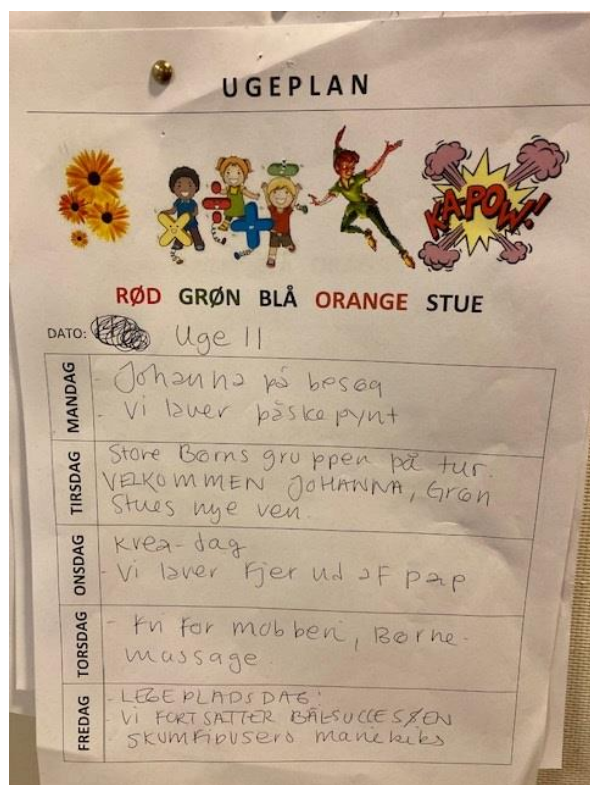 UGEPLAN
KA-POW!
RØD GRØN BLÅ ORANGE STUE
DATO: Uge 11
MANDAG
- Johanna på besøg
- Vi laver påskepynt
TIRSDAG
Store Børns gruppen på tur.
VELKOMMEN JOHANNA, Grøn
Stues nye ven
ONSDAG
Krea-dag
- Vi laver Fjer ud af pap
TORSDAG
- Fri for mobberi, Børne-
massage
FREDAG
- LEGEPLADSDAG:
- Vi FORTSATTER BÅLSUCCESØEN